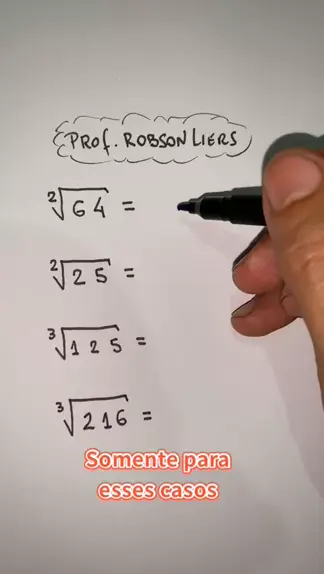 PROf. ROBSON LIERS
²√64 =
²√25 =
³√125 =
³√216 =
Somente para
esses casos